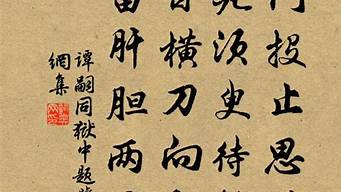 门投止思
死须臾待
自横刀向
留肝胆两
谭嗣同狱中题
網集